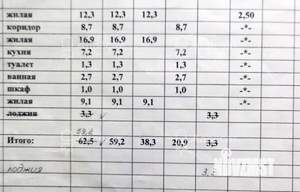 жилая 12,3 12,3 12,3 2,50
коридор 8,7 8,7 8,7 -*-
жилая 16,9 16,9 16,9 -*-
кухня 7,2 7,2 7,2 -*-
туалет 1,3 1,3 1,3 -*-
ванная 2,7 2,7 2,7 -*-
шкаф 1,0 1,0 1,0 -*-
жилая 9,1 9,1 9,1 -*-
лоджия 3,3 3,3
59,2
Итого: 62,5 59,2 38,3 20,9 3,3
лоджия